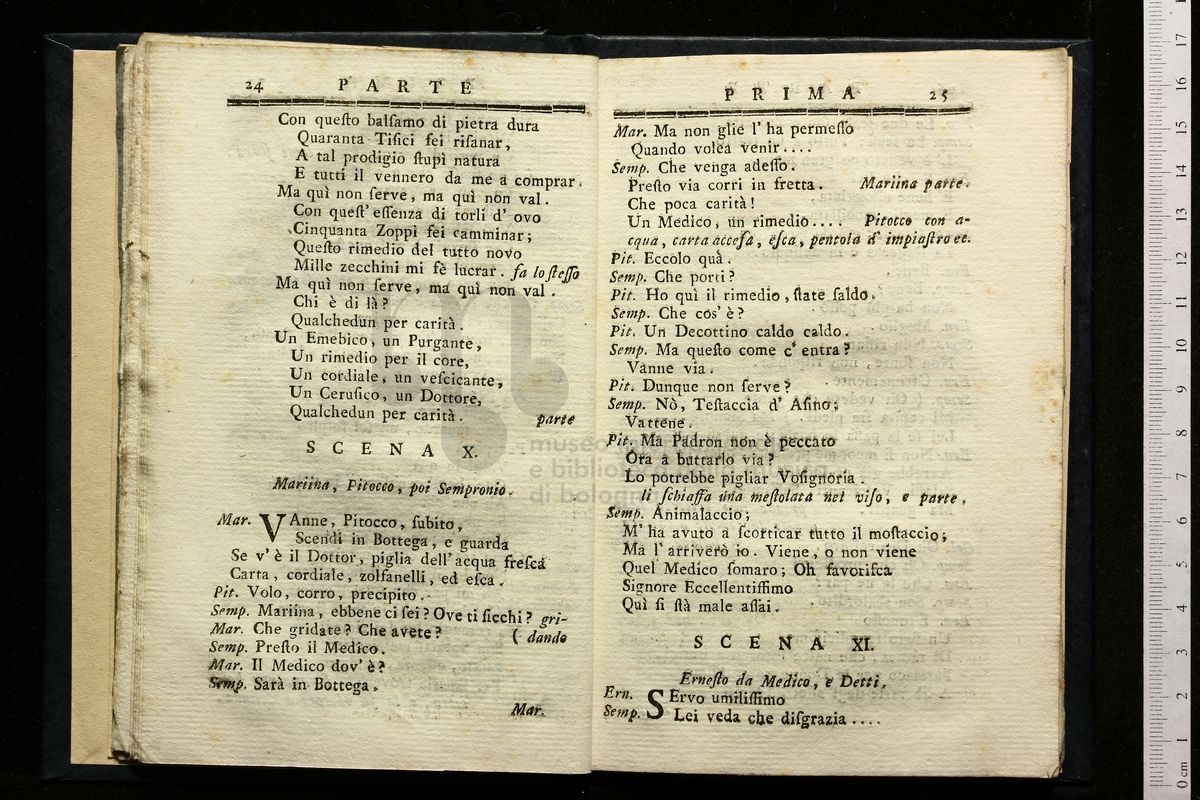 24 PARTE
Con queſto balſamo di pietra dura
Quaranta Tiſici fei riſanar,
A tal prodigio ſtupì natura
E tutti il vennero da me a comprar.
Ma quì non ſerve, ma quì non val.
Con queſt' eſſenza di torli d' ovo
Cinquanta Zoppi fei camminar;
Queſto rimedio del tutto novo
Mille zecchini mi fè lucrar. fa lo ſteſſo
Ma quì non ſerve, ma quì non val.
Chi è di là?
Qualchedun per carità.
Un Emebico, un Purgante,
Un rimedio per il core,
Un cordiale, un veſcicante,
Un Ceruſico, un Dottore,
Qualchedun per carità. parte
SCENA X.
Mariina, Pitocco, poi Sempronio.
Mar. VAnne, Pitocco, ſubito,
Scendi in Bottega, e guarda
Se v' è il Dottor, piglia dell' acqua freſca
Carta, cordiale, zolfanelli, ed eſca.
Pit. Volo, corro, precipito.
Semp. Mariina, ebbene ci ſei? Ove ti ficchi? gri-
Mar. Che gridate? Che avete? ( dando
Semp. Preſto il Medico.
Mar. Il Medico dov' è?
Semp. Sarà in Bottega.
Mar.
PRIMA 25
Mar. Ma non glie l' ha permeſſo
Quando volea venir....
Semp. Che venga adeſſo.
Preſto via corri in fretta. Mariina parte.
Che poca carità!
Un Medico, un rimedio.... Pitocco con a-
cqua, carta acceſa, eſca, pentola d' impiaſtro ec.
Pit. Eccolo quà.
Semp. Che porti?
Pit. Ho quì il rimedio, ſtate ſaldo.
Semp. Che cos' è?
Pit. Un Decottino caldo caldo.
Semp. Ma queſto come c' entra?
Vanne via.
Pit. Dunque non ſerve?
Semp. Nò, Teſtaccia d' Aſino;
Vattene.
Pit. Ma Padron non è peccato
Ora a buttarlo via?
Lo potrebbe pigliar Voſignoria.
li ſchiaffa una meſtolata nel viſo, e parte.
Semp. Animalaccio;
M' ha avuto a ſcorticar tutto il moſtaccio;
Ma l' arriverò io. Viene, o non viene
Quel Medico ſomaro; Oh favoriſca
Signore Eccellentiſſimo
Quì ſi ſtà male aſſai.
SCENA XI.
Erneſto da Medico, e Detti.
Ern. SErvo umiliſſimo
Semp. Lei veda che diſgrazia....